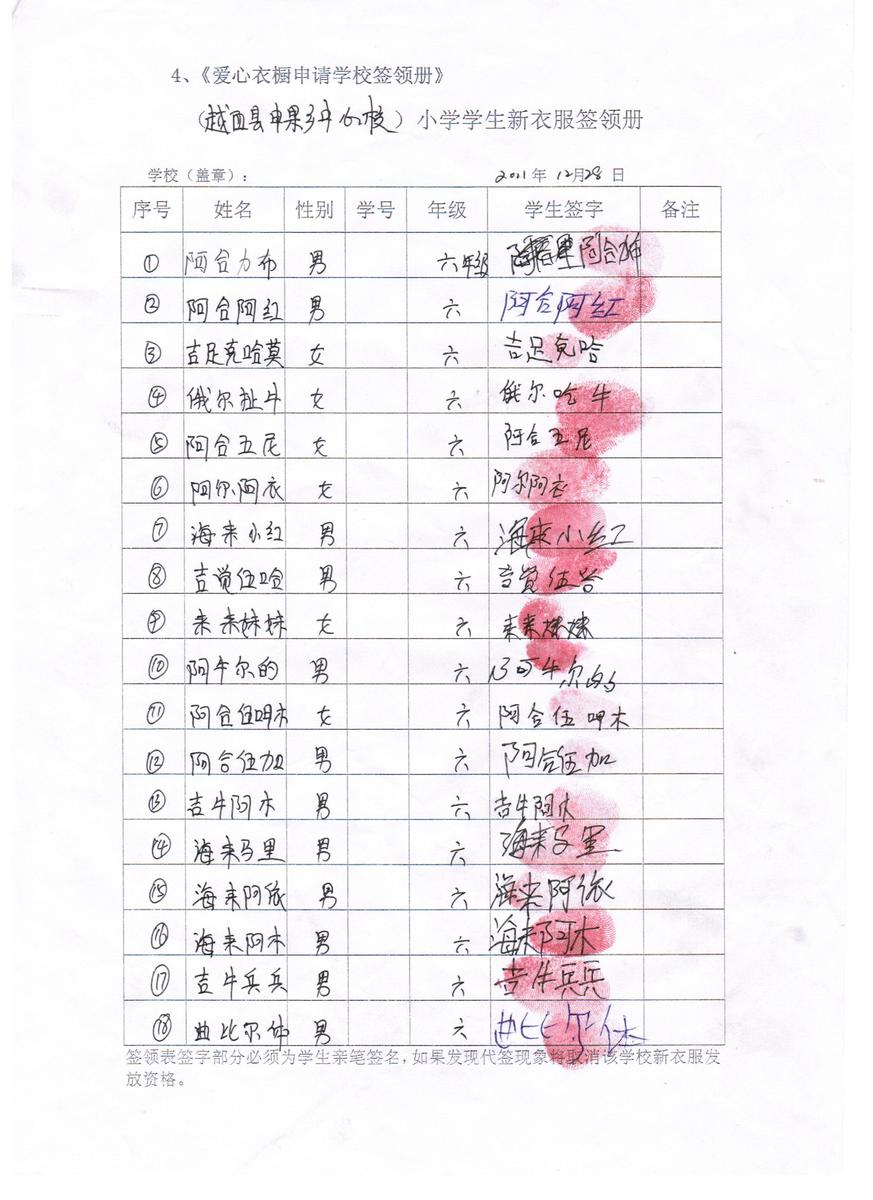 4、《爱心衣橱申请学校签领册》
（越西县申果乡中心校）小学学生新衣服签领册
学校（盖章）： 2011年 12月28日
序号 姓名 性别 学号 年级 学生签字 备注
① 阿合力布 男 六年级 阿合力布
② 阿合阿红 男 六 阿合阿红
③ 吉足克哈莫 女 六 吉足克哈
④ 俄尔扯牛 女 六 俄尔 牛
⑤ 阿合五尼 女 六 阿合五尼
⑥ 阿尔阿衣 女 六 阿尔阿衣
⑦ 海来小红 男 六 海来小红
⑧ 吉觉伍哈 男 六 吉觉伍哈
⑨ 来来妹妹 女 六 来来妹妹
⑩ 阿牛尔的 男 六 阿牛尔的
⑪ 阿合伍呷木 女 六 阿合伍呷木
⑫ 阿合伍加 男 六 阿合伍加
⑬ 吉牛阿木 男 六 吉牛阿木
⑭ 海来马里 男 六 海来马里
⑮ 海来阿依 男 六 海来阿依
⑯ 海来阿木 男 六 海来阿木
⑰ 吉牛兵兵 男 六 吉牛兵兵
⑱ 曲比尔 男 六 曲比尔
签领表签字部分必须为学生亲笔签名,如果发现代签现象将取消该学校新衣服发
放资格。